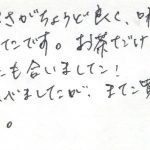 さがちょうど良く、味
てです。お茶だけ
にも合いました！
べましたが、また買
。